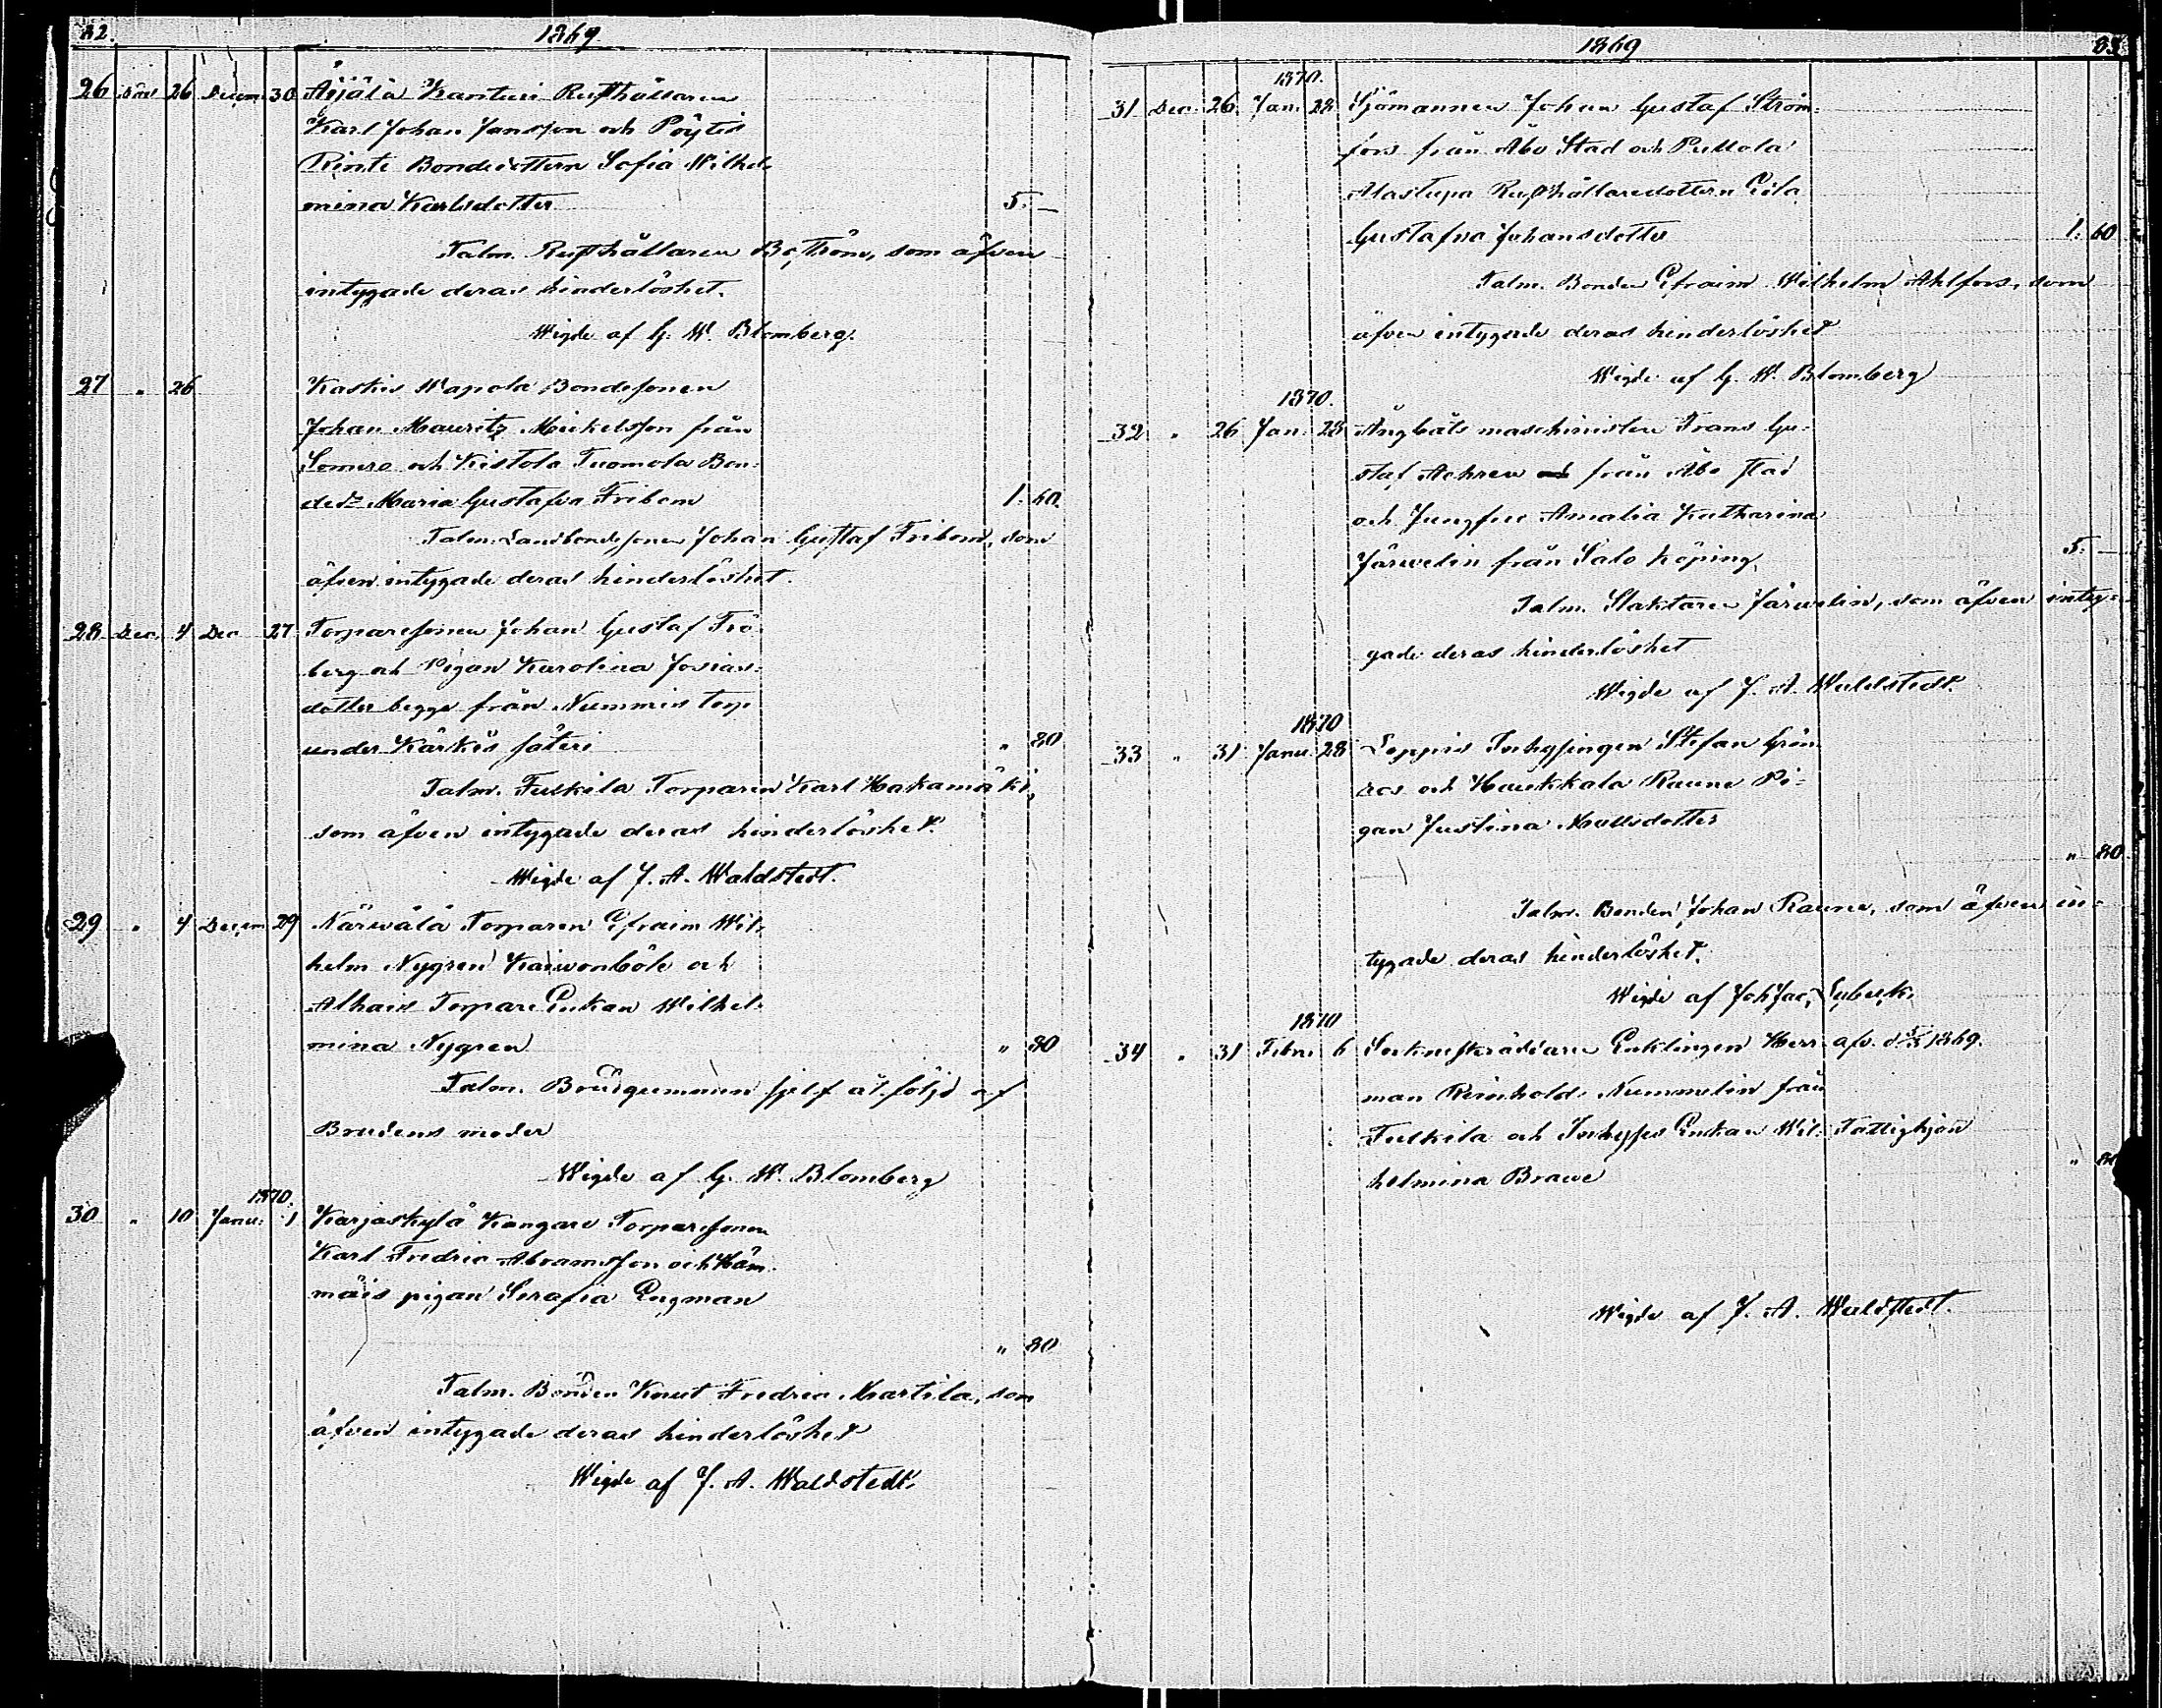 82.
1869
26 26 Decem 30 Äijälä Kanturi Rusthållaren
Karl Johan Jansson och Pöytis
Rinti Bondedottern Sofia Wilhel-
mina Karlsdotter 5. —
Talm. Rusthållaren Boström, som äfven
intygade deras hinderlöshet.
Wigde af G. W. Blomberg.
27 " 26 Kaskis Wapola Bondesonen
Johan Mauritz Mickelsson från
Somero och Kistola Tuomola Bon-
ded:r Maria Gustafva Fribom 1. 60.
Talm. Landbondesonen Johan Gustaf Fribom, som
äfven intygade deras hinderlöshet.
28 Dec. 4 Dec 27 Torparesonen Johan Gustaf Frö-
berg och Pigan Karolina Josias-
dotter begge från Nummis torp
under Kärkis säteri " 80
Talm. Tuskila Torparen Karl Hakamäki,
som äfven intygade deras hinderlöshet.
Wigde af J. A. Waldstedt.
29 " 4 Decem 29 Närwälä Torparen Efraim Wil-
helm Nygren Kaiwonböle och
Alhais Torpare Enkan Wilhel-
mina Nygren " 80
Talm. Brudgummen sjelf åtföljd af
Brudens moder
Wigde af G. W. Blomberg
1870.
30 " 10 Janu. 1 Karjaskylä Kangare Torparesonen
Karl Fredric Abramsson och Häm-
mäis pigan Serafia Engman
" 80
Talm. Bonden Knut Fredric Martila, som
äfven intygade deras hinderlöshet
Wigde af J. A. Waldstedt.
1869
83.
1870.
31 Dec. 26 Jan. 28 Sjömannen Johan Gustaf Ström-
fors från Åbo Stad och Pullola
Alastupa Rusthållaredottern
Gustafva Johansdotter 1. 60
Talm. Bonden Efraim Wilhelm Ahlfors, som
äfven intygade deras hinderlöshet
Wigde af G. W. Blomberg
1870.
32 " 26 Jan. 28 Ångbåts maschinisten Frans Gu-
staf Achren från Åbo stad
och Jungfru Amalia Katharina
Järwelin från Salo köping 5. —
Talm. Slaktaren Järwelin, som äfven inty-
gade deras hinderlöshet
Wigde af J. A. Waldstedt.
1870
33 " 31 Janu. 28 Loppis Inhysingen Stefan Grön-
roos och Haukkala Raune Pi-
gan Justina Mattsdotter
" 80
Talm. Bonden Johan Raune, som äfven in-
tygade deras hinderlöshet.
Wigde af Joh. Jac. Lybeck.
1870
34 " 31 Febr. 6 Sockneskräddaren Enklingen Herr- afv. d. 1869.
man Reinhold Nummelin från
Tuskila och Inhyses Enkan Wil- Fattighjon
helmina Brawe " 80
Wigde af J. A. Waldstedt.